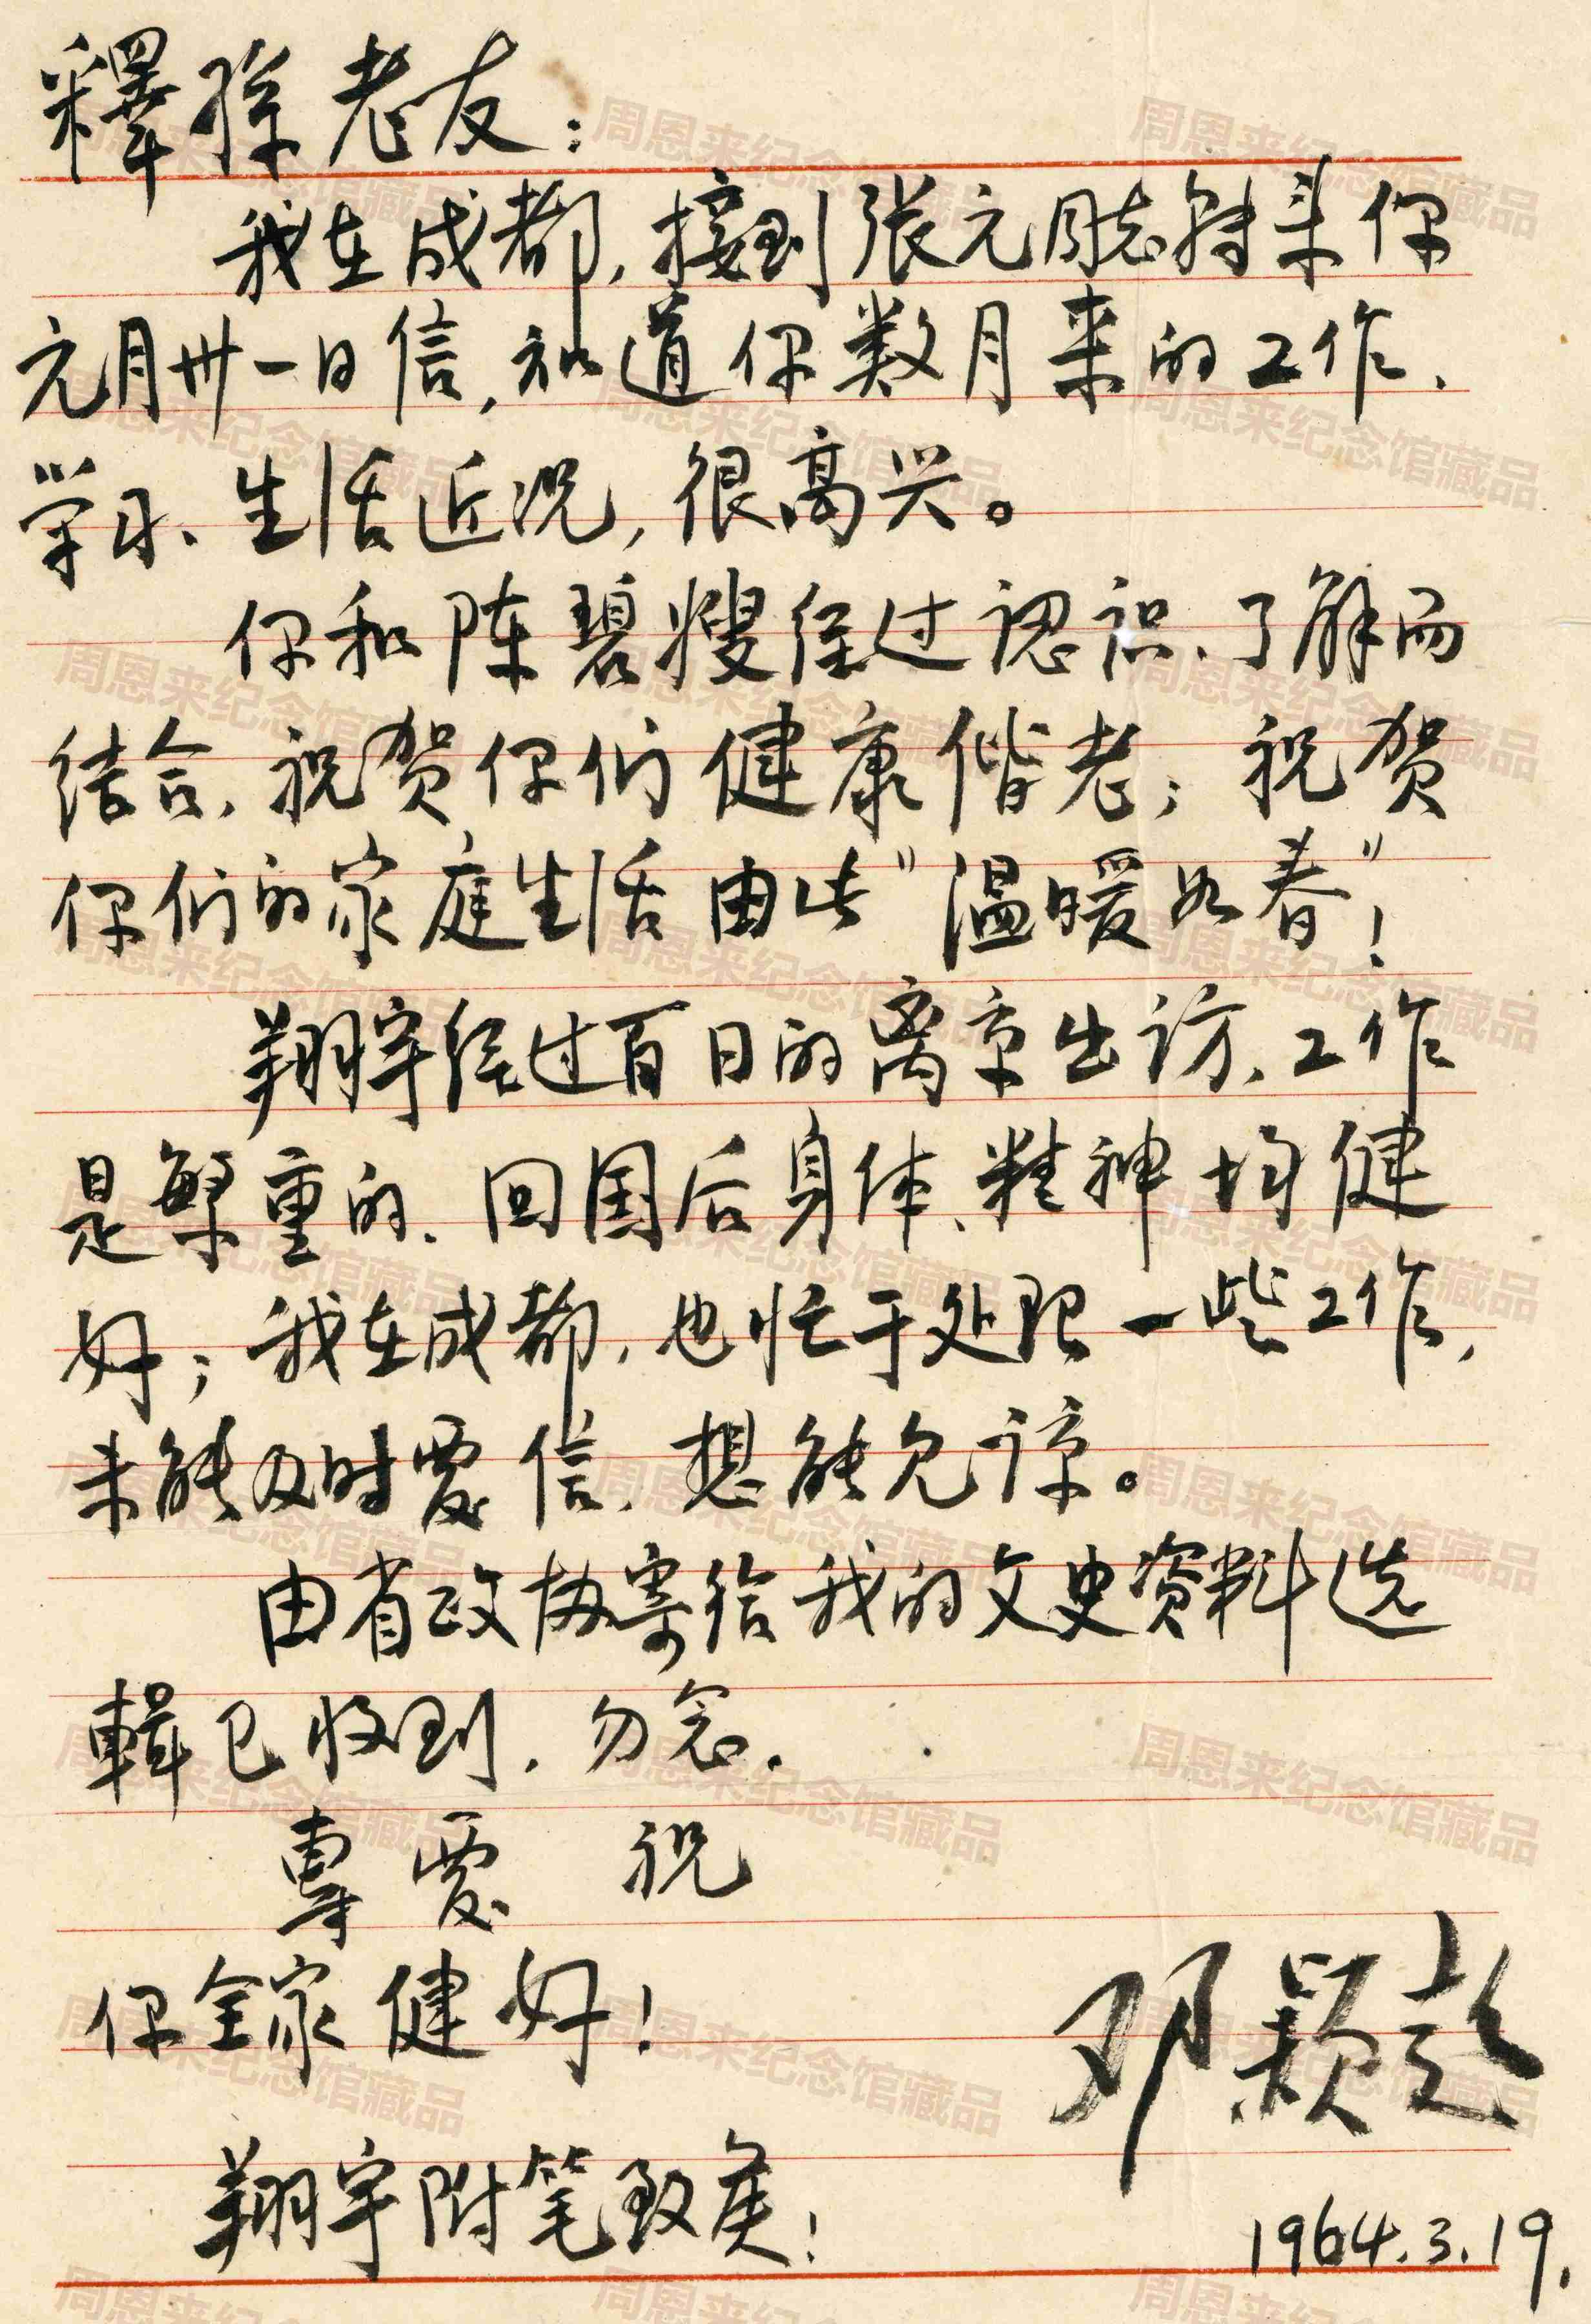 釋孫老友：
我在成都，接到张元同志转来你
元月卅一日信，知道你数月来的工作、
学习、生活近况，很高兴。
你和陈碧嫂经过認识、了解而
结合，祝贺你们健康偕老；祝贺
你们的家庭生活由此“温暖如春”！
翔宇经过百日的离京出访，工作
是繁重的，回国后身体、精神均健
好；我在成都，也忙于处理一些工作，
未能及时覆信，想能见谅。
由省政协寄给我的文史资料选
輯已收到，勿念。
專覆 祝
你全家健好！
邓颖超
翔宇附笔致候！
1964.3.19.
周恩来纪念馆藏品